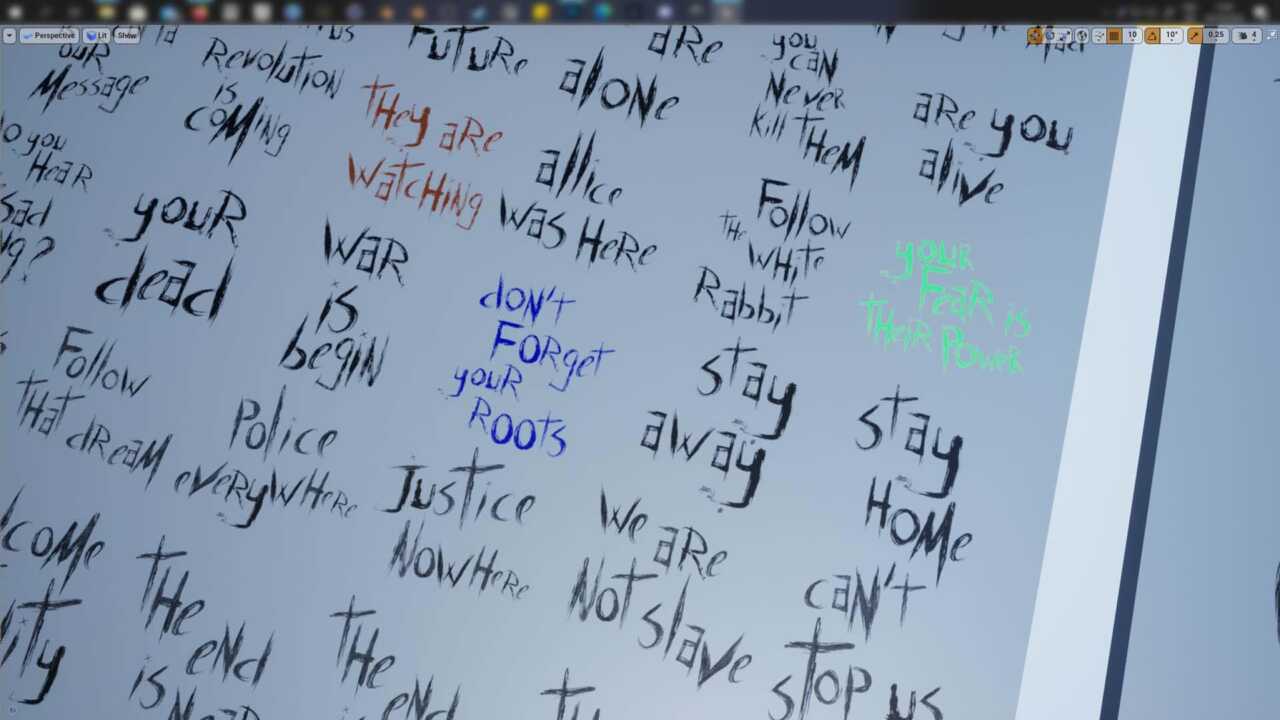 Perspective
Lit
Show
10
10°
0.25
4
OUR
Message
Revolution
is
coming
Future
alone
are
you
can
Never
kill them
are you
alive
They are
watching
allice
was here
Follow
the
white
Rabbit
your
Fear is
their Power
you
Hear
sad
your
dead
war
is
begin
don't
Forget
your
roots
stay
away
stay
home
Follow
that dream
Police
everywhere
Justice
nowhere
we are
not slave
can't
stop us
come
the
end
is
the
end